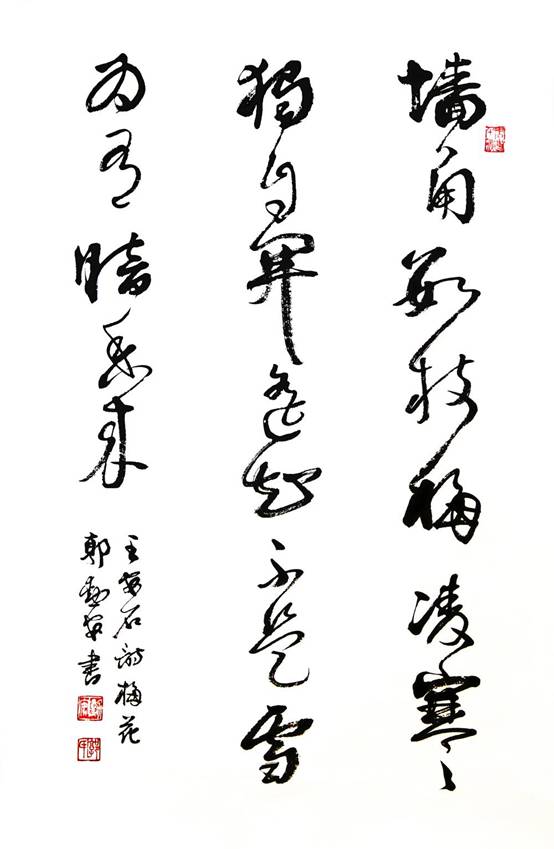 墙角数枝梅凌寒
獨自開遥知不是雪
为有暗香来
王安石詩梅花
郭書